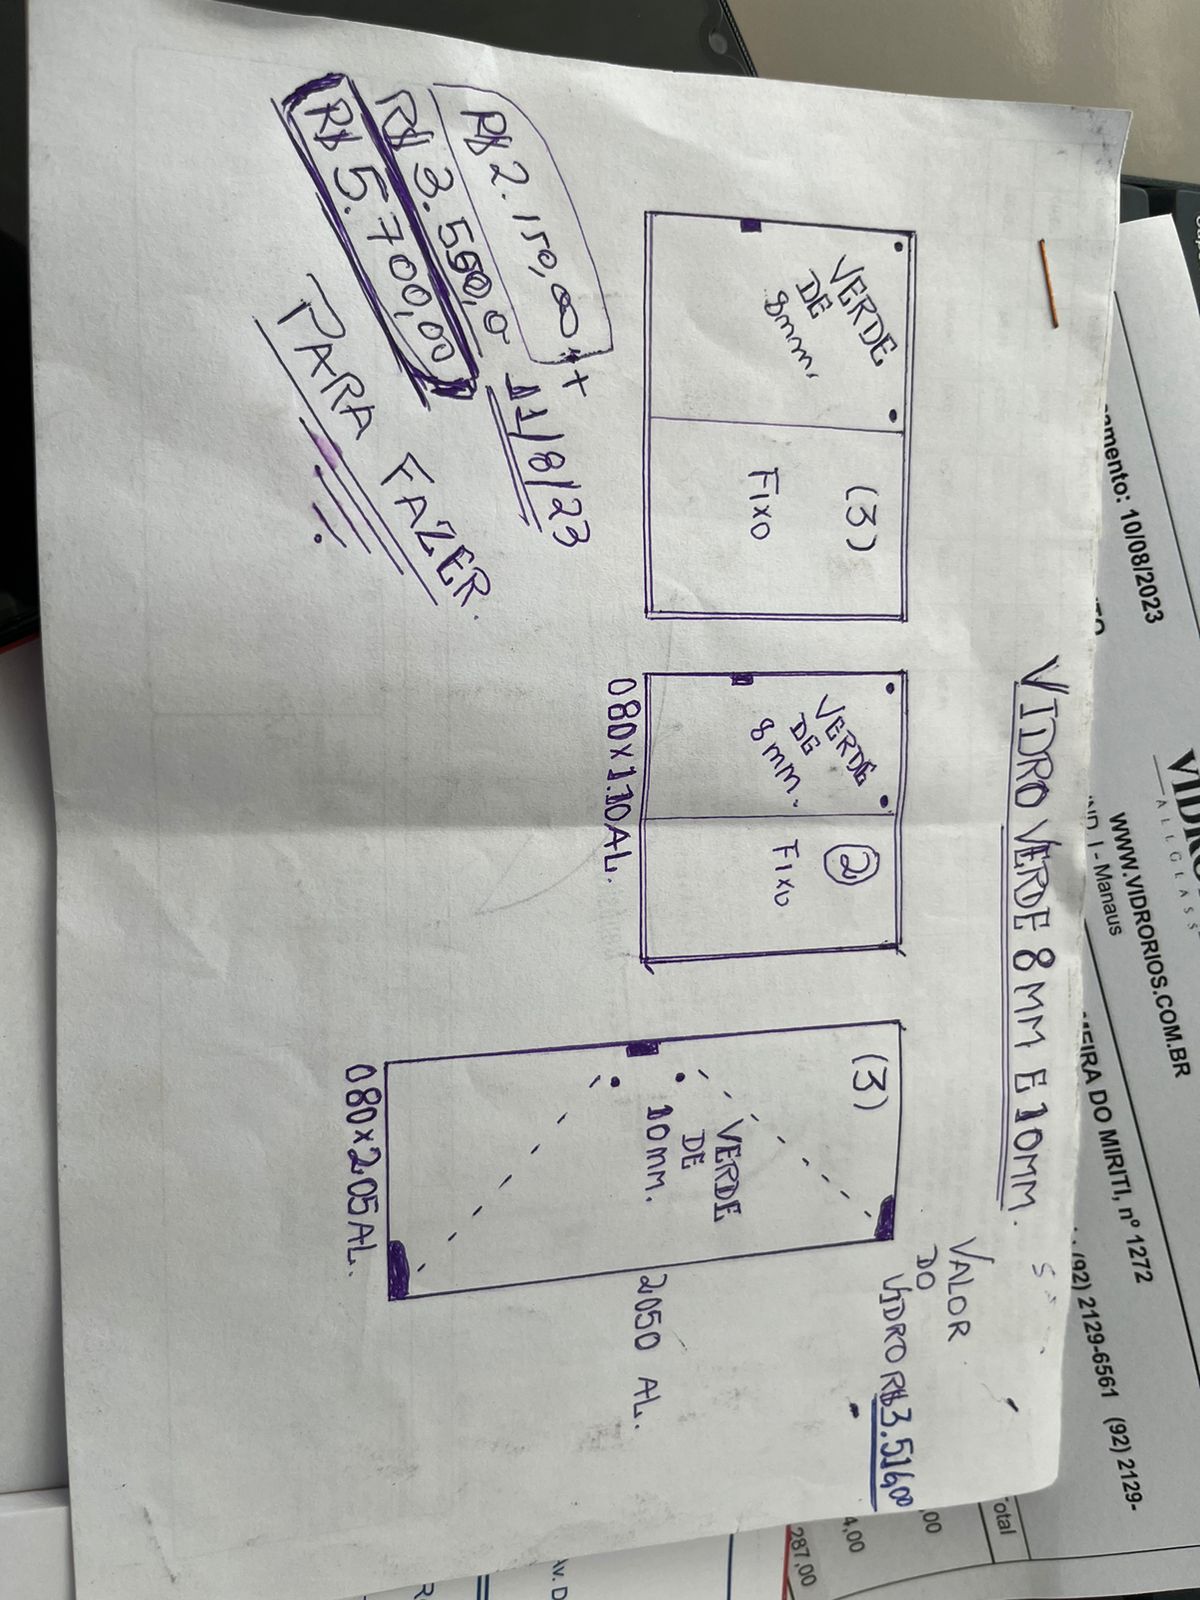 VIDRO VERDE 8MM E 10MM.
VERDE
DE
8mm.
(3)
FIXO
VERDE
DE
8mm.
2
FIXO
080x1.10AL.
(3)
VERDE
DE
10mm.
080x205AL.
2050 AL.
VALOR
DO
VIDRO R$3.516,00
R$2.150,00 +
R$3.550,0
R$5.700,00
11/8/23
PARA FAZER.
VIDRO
ALLGLASS
WWW.VIDRORIOS.COM.BR
IND. I - Manaus
MEIRA DO MIRITI, nº 1272
(92) 2129-6561 (92) 2129-
amento: 10/08/2023
Total
,00
4,00
287,00
Av. D